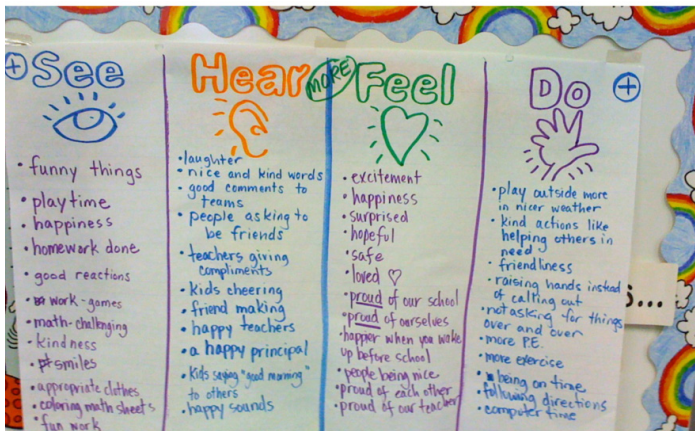 + See
• funny things
• playtime
• happiness
• homework done
• good reactions
• work-games
• math-challenging
• kindness
• smiles
• appropriate clothes
• coloring math sheets
• fun work
Hear
• laughter
• nice and kind words
• good comments to
teams
• people asking to
be friends
• teachers giving
compliments
• kids cheering
• friend making
• happy teachers
• a happy principal
• kids saying "good morning"
to others
• happy sounds
MORE
Feel
• excitement
• happiness
• surprised
• hopeful
• safe
• loved ♡
• proud of our school
• proud of ourselves
• happier when you wake
up before school
• people being nice
• proud of each other
• proud of our teacher
Do +
• play outside more
in nicer weather
• kind actions like
helping others in
need
• friendliness
• raising hands instead
of calling out
• not asking for things
over and over
• more P.E.
• more exercise
• being on time
• following directions
• computer time
s...